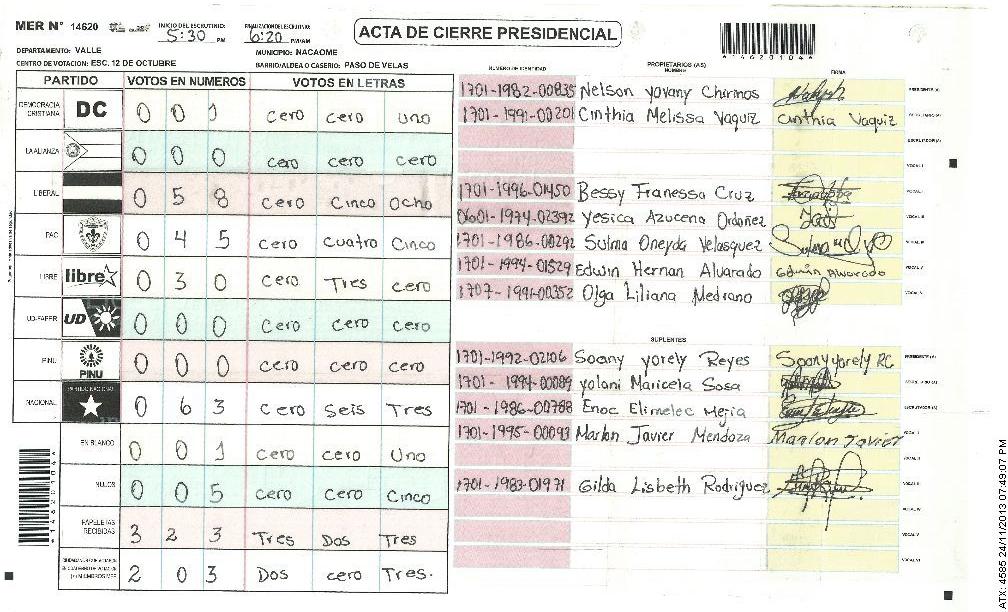 MER N° 14620
INICIO DEL ESCRUTINIO: 5:30 PM
FINALIZACION DEL ESCRUTINIO: 6:20 PM/AM
ACTA DE CIERRE PRESIDENCIAL
*1462010 4*
DEPARTAMENTO: VALLE
MUNICIPIO: NACAOME
CENTRO DE VOTACION: ESC. 12 DE OCTUBRE
BARRIO/ALDEA O CASERIO: PASO DE VELAS
PARTIDO VOTOS EN NUMEROS VOTOS EN LETRAS
DEMOCRACIA CRISTIANA DC 0 0 1 cero cero uno
LA ALIANZA 0 0 0 cero cero cero
LIBERAL 0 5 8 cero Cinco Ocho
PAC 0 4 5 cero cuatro Cinco
LIBRE libre 0 3 0 cero Tres cero
UD-FAPER UD 0 0 0 Cero cero cero
PINU PINU 0 0 0 cero cero cero
NACIONAL PARTIDO NACIONAL 0 6 3 cero Seis Tres
EN BLANCO 0 0 1 cero cero Uno
NULOS 0 0 5 cero Cero Cinco
PAPELETAS RECIBIDAS 3 2 3 Tres Dos Tres
2 0 3 Dos cero Tres.
NUMERO DE IDENTIDAD
PROPIETARIOS (AS)
NOMBRE
FIRMA
1701-1982-00835 Nelson yovany Chirinos PRESIDENTE (A)
1701-1991-00201 Cinthia Melissa Vaquiz cinthia Vaquiz SECRETARIO (A)
ESCRUTADOR (A)
VOCAL I
1701-1996-01450 Bessy Franessa Cruz
0601-1974-02392 yesica Azucena Ordoñez
1701-1986-00292 Sulma Oneyda Velasquez
1701-1994-01529 Edwin Hernan Alvarado Edwin Alvarado
1707-1991-00352 Olga Liliana Medrano
SUPLENTES
1701-1992-02106 Soany yorely Reyes Soany yorely RC PRESIDENTE (A)
1701-1994-00089 yolani Maricela Sosa
1701-1986-00788 Enoc Elimelec Mejia ESCRUTADOR (A)
1701-1995-00093 Marlon Javier Mendoza Marlon Javier
1701-1983-01971 Gilda Lisbeth Rodriguez
VOCAL IV
VOCAL V
VOCAL VI
ATX: 4585 24/11/2013 07:49:07 PM